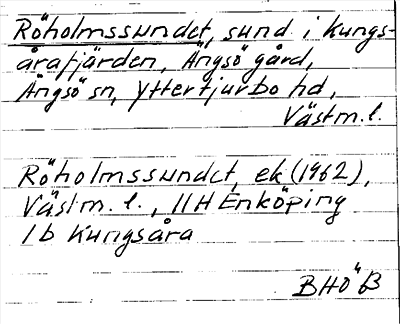 Röholmssundet, sund i Kungs-
årafjärden, Ängsö gård,
Ängsö sn, Yttertjurbo hd,
Västm.l.
Röholmssundet, ek (1962),
Västm. l., 11H Enköping
1b Kungsåra
BHÖ